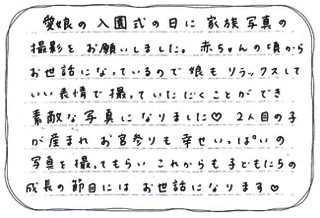 愛娘の入園式の日に家族写真の
撮影をお願いしました。赤ちゃんの頃から
お世話になっているので娘もリラックスして
いい表情で撮っていただくことができ
素敵な写真になりました♡ 2人目の子
が産まれお宮参りも幸せいっぱいの
写真を撮ってもらいこれからも子どもたちの
成長の節目にはお世話になります♡